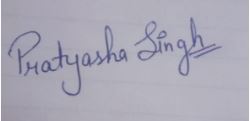 Pratyasha Singh